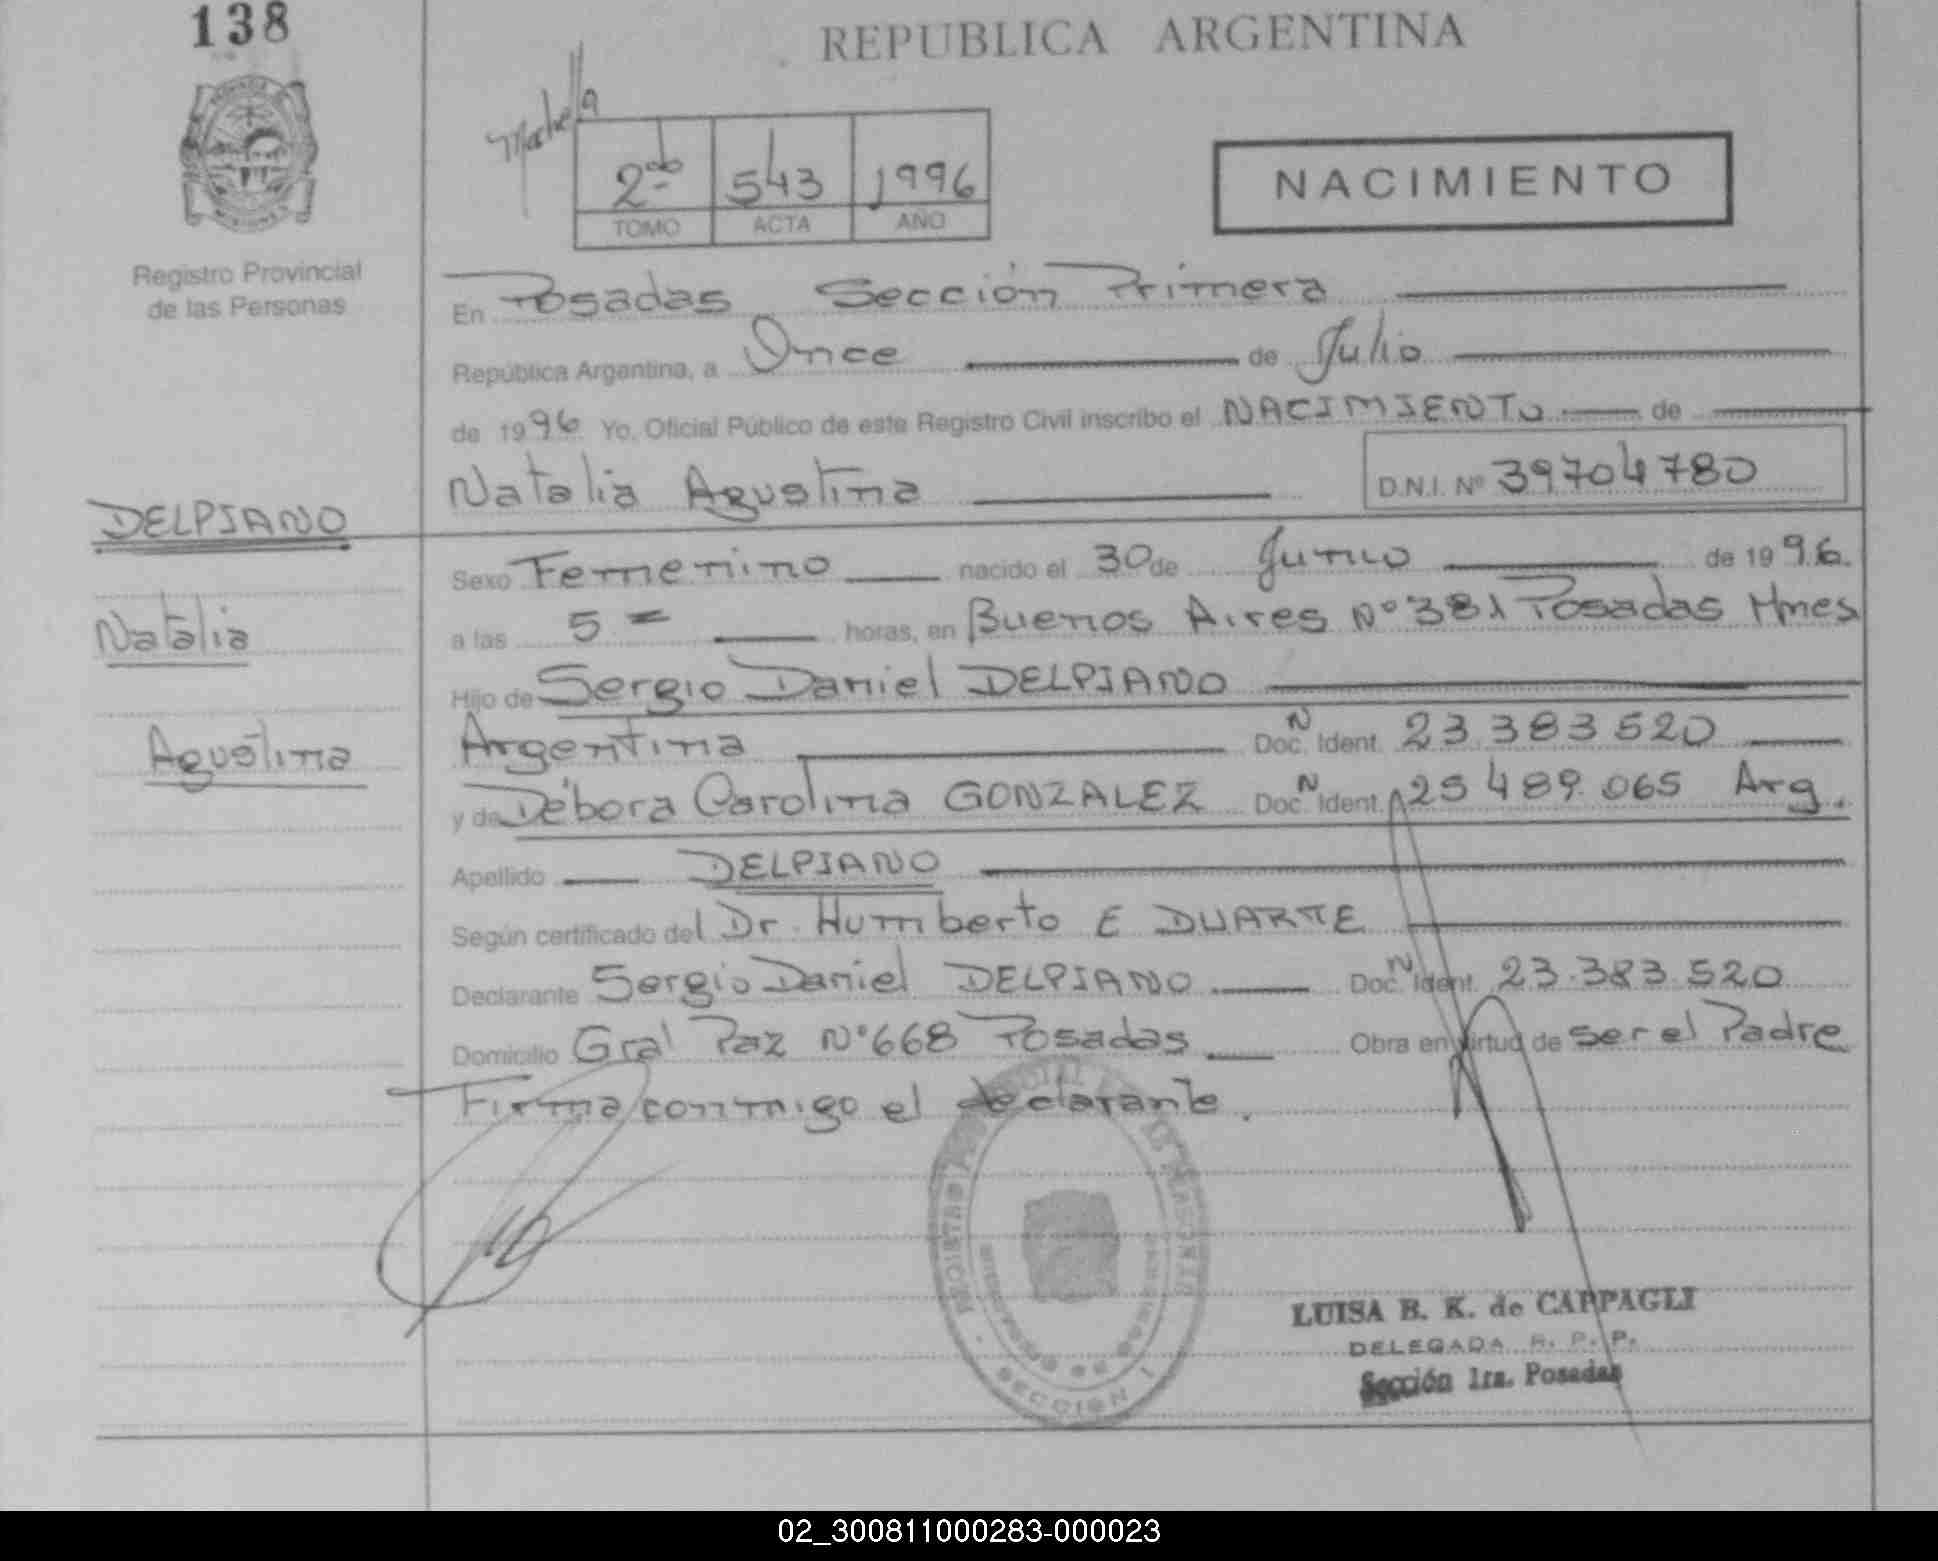 138
REPUBLICA ARGENTINA
2do 543 1996
TOMO ACTA AÑO
NACIMIENTO
Registro Provincial
de las Personas
En Posadas Sección Primera
República Argentina, a Once de Julio
de 1996 Yo, Oficial Público de este Registro Civil inscribo el NACIMIENTO de
Natalia Agustina D.N.I. Nº 39704780
DELPIANO
Sexo Femenino nacido el 30 de Junio de 1996.
Natalia
a las 5 = horas, en Buenos Aires Nº 381 Posadas Mnes
Hijo de Sergio Daniel DELPIANO
Agustina
Argentina Doc. N Ident. 23.383.520
y de Débora Carolina GONZALEZ Doc. N Ident. 25.489.065 Arg.
Apellido DELPIANO
Según certificado del Dr. Humberto E DUARTE
Declarante Sergio Daniel DELPIANO Doc. N Ident. 23.383.520
Domicilio Gral Paz Nº 668 Posadas Obra en virtud de ser el Padre
Firma conmigo el declarante.
SECCION 1
LUISA B. K. de CAPPAGLI
DELEGADA R. P. P.
Sección 1ra. Posadas
02_300811000283-000023